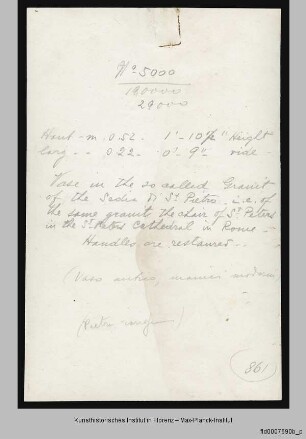 No 5000
190000
29000
Haut - m. 0.52 - 1' - 10½" Height
larg - - 0.22 - 0' - 9" wide -
Vase in the so called Granit
of the Sedia di St Pietro - i.e. of
the same granit the chair of St Peters
in the St Peters Cathedral in Rome -
Handles are restaured -
(Vaso antico, manici moderni
(Pietra
861
Kunsthistorisches Institut in Florenz – Max-Planck-Institut
fld0007590b_p